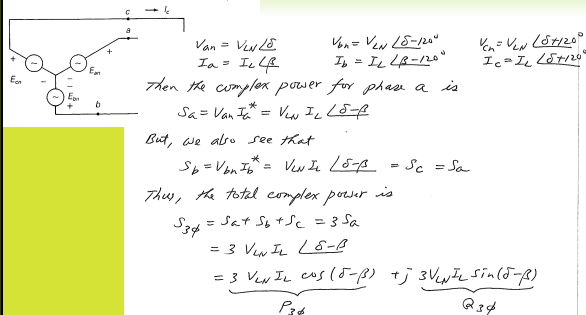 c → Ic
a
+ + Ean
Ecn
Ebn
+ b
Van = VLN ∠δ Vbn = VLN ∠δ-120° Vcn = VLN ∠δ+120°
Ia = IL ∠β Ib = IL ∠β-120° Ic = IL ∠δ+120°
Then the complex power for phase a is
Sa = Van Ia* = VLN IL ∠δ-β
But, we also see that
Sb = Vbn Ib* = VLN IL ∠δ-β = Sc = Sa
Thus, the total complex power is
S3φ = Sa + Sb + Sc = 3 Sa
= 3 VLN IL ∠δ-β
= 3 VLN IL cos(δ-β) + j 3 VLN IL sin(δ-β)
P3φ Q3φ